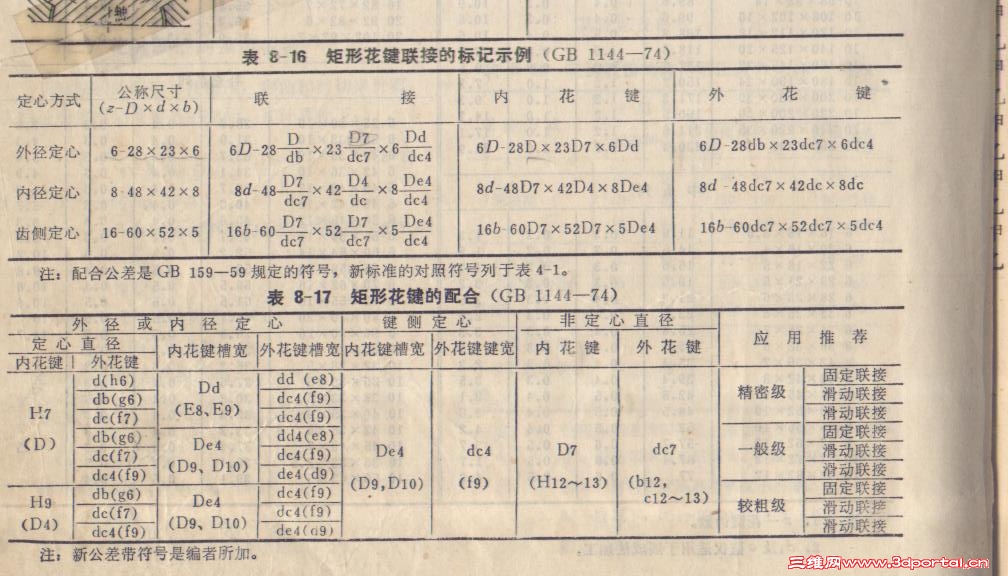 表 8-16 矩形花键联接的标记示例(GB 1144—74)
定心方式 公称尺寸 (z-D×d×b) 联 接 内 花 键 外 花 键
外径定心 6-28×23×6 6D-28 D/db ×23 D7/dc7 ×6 Dd/dc4 6D-28D×23D7×6Dd 6D-28db×23dc7×6dc4
内径定心 8-48×42×8 8d-48 D7/dc7 ×42 D4/dc ×8 De4/dc4 8d-48D7×42D4×8De4 8d-48dc7×42dc×8dc
齿侧定心 16-60×52×5 16b-60 D7/dc7 ×52 D7/dc7 ×5 De4/dc4 16b-60D7×52D7×5De4 16b-60dc7×52dc7×5dc4
注：配合公差是GB 159—59规定的符号，新标准的对照符号列于表4-1。
表 8-17 矩形花键的配合(GB 1144—74)
外 径 或 内 径 定 心 键 侧 定 心 非 定 心 直 径 应 用 推 荐
定 心 直 径 内花键槽宽 外花键槽宽 内花键槽宽 外花键键宽 内 花 键 外 花 键
内花键 外花键
H7 (D) d(h6) Dd (E8、E9) dd (e8) De4 (D9,D10) dc4 (f9) D7 (H12~13) dc7 (b12, c12~13) 精密级 固定联接
db(g6) dc4(f9) 滑动联接
dc(f7) dc4(f9) 滑动联接
db(g6) De4 (D9、D10) dd4(e8) 一般级 固定联接
dc(f7) dc4(f9) 滑动联接
dc4(f9) de4(d9) 滑动联接
H9 (D4) db(g6) De4 (D9、D10) dc4(f9) 较粗级 固定联接
dc(f7) dc4(f9) 滑动联接
dc4(f9) de4(d9) 滑动联接
注：新公差带符号是编者所加。
三维网www.3dportal.cn